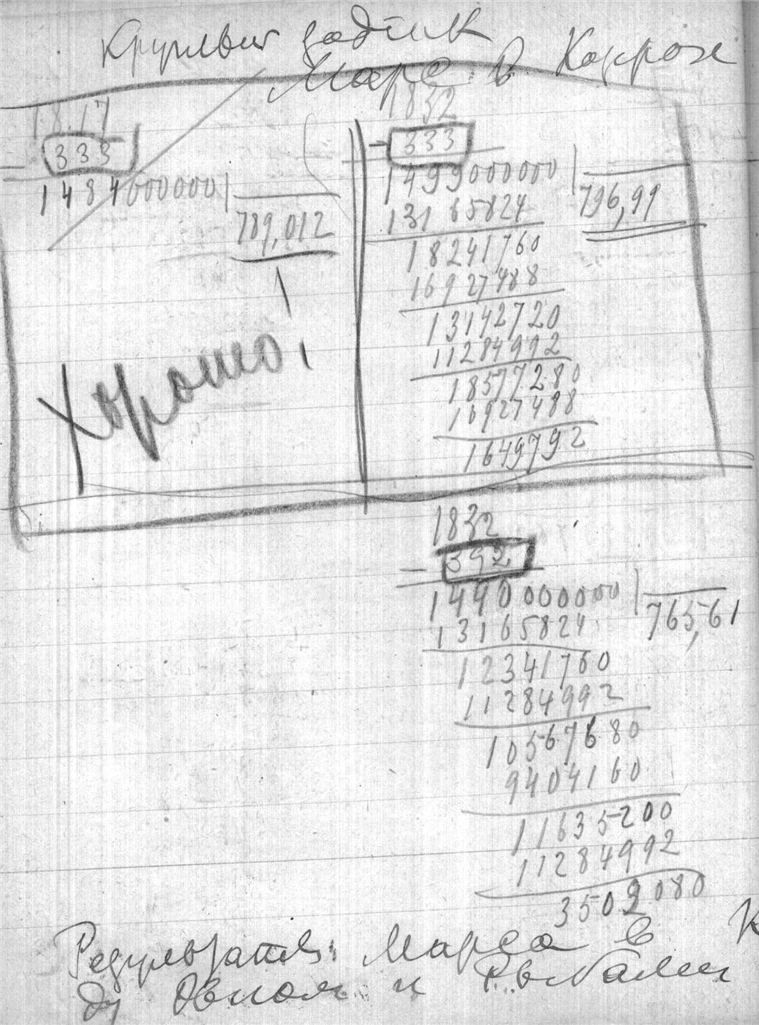 Круглый зодиак
Марс в
1817
333
1484000000
789,012
Хорошо!
1832
- 333
1499000000
796,99
13165824
18241760
16927488
13142720
11284992
18577280
16927488
1649792
1832
- 392
1440000000
765,61
13165824
12341760
11284992
10567680
9404160
11635200
11284992
3502080
Результат: Марса в К
и Рыбами